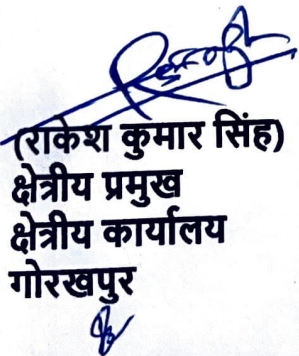 (राकेश कुमार सिंह)
क्षेत्रीय प्रमुख
क्षेत्रीय कार्यालय
गोरखपुर